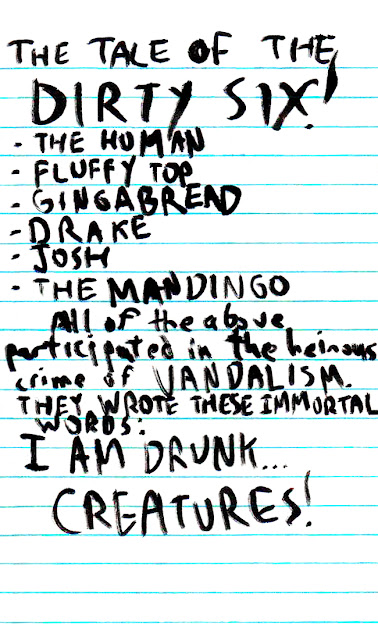 THE TALE OF THE
DIRTY SIX!
- THE HUMAN
- FLUFFY TOP
- GINGABREAD
- DRAKE
- JOSH
- THE MANDINGO
All of the above
participated in the heinous
crime of VANDALISM.
THEY WROTE THESE IMMORTAL
WORDS:
I AM DRUNK...
CREATURES!